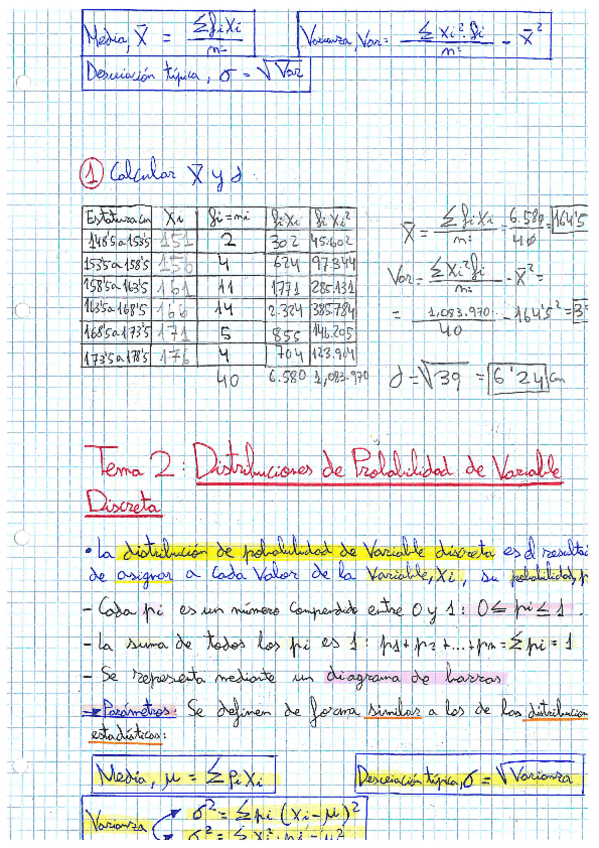 Media, X̄ = Σfixi / n Varianza, Var = Σxi²·fi / n - X̄²
Desviación típica, σ = √Var
① Calcular X̄ y σ:
Estatura cm Xi fi=ni fiXi fiXi²
148'5 a 153'5 151 2 302 45.602
153'5 a 158'5 156 4 624 97.344
158'5 a 163'5 161 11 1771 285.131
163'5 a 168'5 166 14 2.324 385.784
168'5 a 173'5 171 5 855 146.205
173'5 a 178'5 176 4 704 123.904
40 6.580 1,083.970
X̄ = ΣfiXi / n = 6.580 / 40 = 164'5
Var = ΣXi²fi / n - X̄² =
= 1,083.970 / 40 - 164'5² = 3
σ = √39 = 6'24 cm
Tema 2: Distribuciones de Probabilidad de Variable
Discreta
• La distribución de probabilidad de Variable discreta es el resulta
de asignar a cada Valor de la Variable, Xi, su probabilidad, p
- Cada pi es un número comprendido entre 0 y 1: 0 ≤ pi ≤ 1.
- La suma de todos los pi es 1: p1 + p2 + ... + pn = Σpi = 1
- Se representa mediante un diagrama de barras
→ Parámetros: Se definen de forma similar a los de las distribucion
estadísticas:
Media, μ = ΣpiXi Desviación típica, σ = √Varianza
Varianza σ² = Σpi (Xi-μ)²
σ² = ΣXi²·pi - μ²